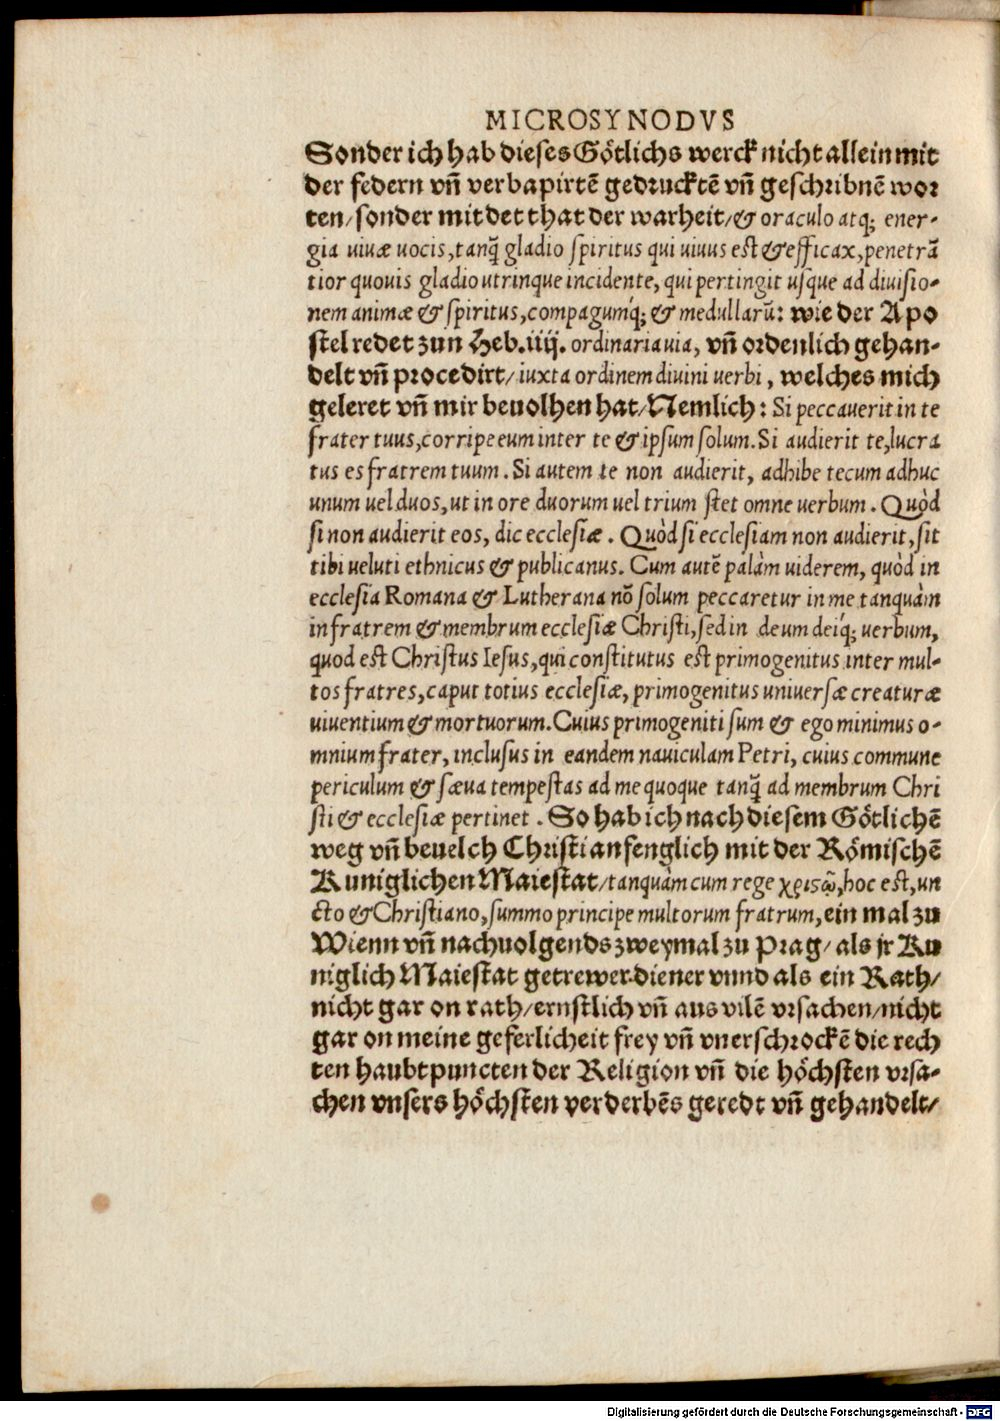 MICROSYNODVS
Sonder ich hab dieses Götlichs werck nicht allein mit
der federn vñ verbapirtẽ gedrucktẽ vñ geschribnẽ wor
ten/sonder mit det that der warheit/& oraculo atq; ener-
gia uiuæ uocis, tanq̃ gladio spiritus qui uiuus est & efficax, penetrã
tior quouis gladio utrinque incidente, qui pertingit usque ad diuisio-
nem animæ & spiritus, compagumq́; & medullarũ: wie der Apo
stel redet zun Heb.iiij. ordinaria uia, vñ ordenlich gehan-
delt vñ procedirt/iuxta ordinem diuini uerbi, welches mich
geleret vñ mir beuolhen hat/Nemlich: Si peccauerit in te
frater tuus, corripe eum inter te & ipsum solum. Si audierit te, lucra
tus es fratrem tuum. Si autem te non audierit, adhibe tecum adhuc
unum uel duos, ut in ore duorum uel trium stet omne uerbum. Quòd
si non audierit eos, dic ecclesiæ. Quòd si ecclesiam non audierit, sit
tibi ueluti ethnicus & publicanus. Cum autẽ palàm uiderem, quòd in
ecclesia Romana & Lutherana nõ solum peccaretur in me tanquàm
in fratrem & membrum ecclesiæ Christi, sed in deum deiq́; uerbum,
quod est Christus Iesus, qui constitutus est primogenitus inter mul-
tos fratres, caput totius ecclesiæ, primogenitus uniuersæ creaturæ
uiuentium & mortuorum. Cuius primogeniti sum & ego minimus o-
mnium frater, inclusus in eandem nauiculam Petri, cuius commune
periculum & sæua tempestas ad me quoque tanq̃ ad membrum Chri
sti & ecclesiæ pertinet. So hab ich nach diesem Götlichẽ
weg vñ beuelch Christi anfenglich mit der Römischẽ
Kuniglichen Maiestat/tanquàm cum rege χριςῶ, hoc est, un
cto & Christiano, summo principe multorum fratrum, ein mal zu
Wienn vñ nachuolgends zweymal zu Prag/ als jr Ku
niglich Maiestat getrewer diener vnnd als ein Rath/
nicht gar on rath/ernstlich vñ aus vilẽ vrsachen/nicht
gar on meine geferlicheit frey vñ vnerschrockẽ die rech
ten haubtpuncten der Religion vñ die höchsten vrsa-
chen vnsers höchsten verderbẽs geredt vñ gehandelt/
Digitalisierung gefördert durch die Deutsche Forschungsgemeinschaft - DFG